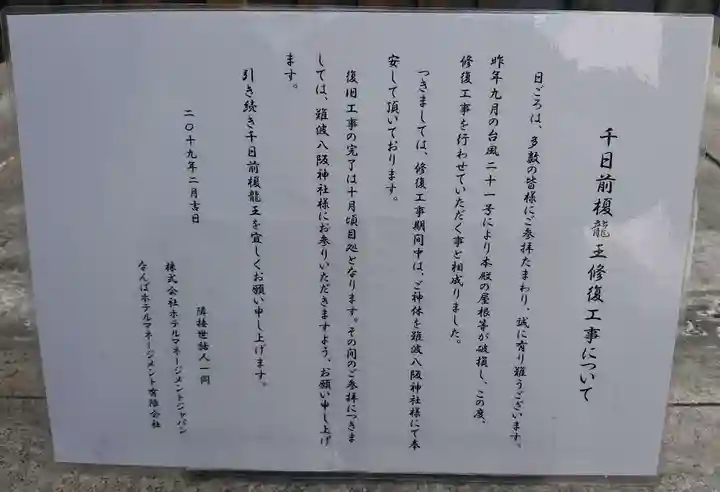 千日前榎龍王修復工事について
日ごろは、多数の皆様にご参拝たまわり、誠に有り難うございます。
昨年九月の台風二十一号により本殿の屋根等が破損し、この度、
修復工事を行わせていただく事と相成りました。
つきましては、修復工事期間中は、ご神体を難波八阪神社様にて本
安して頂いております。
復旧工事の完了は十月頃目処となります。その間のご参拝につきま
しては、難波八阪神社様にお参りいただきますよう、お願い申し上げ
ます。
引き続き千日前榎龍王を宜しくお願い申し上げます。
二〇十九年二月吉日
隣接世話人一同
株式会社ホテルマネージメントジャパン
なんばホテルマネージメント有限会社